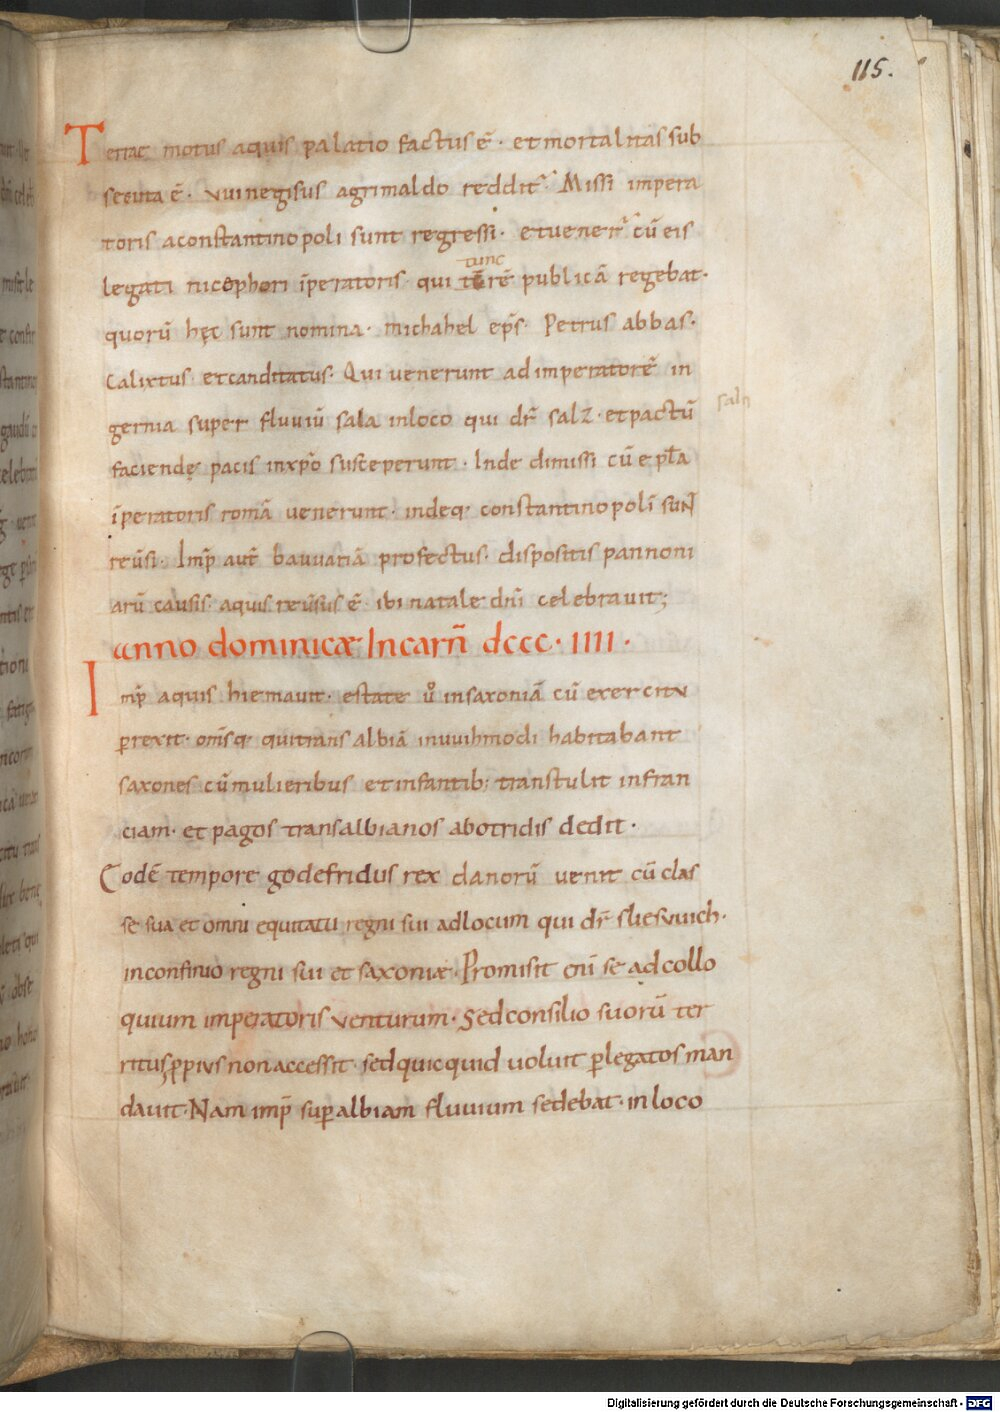 115.
Terrae motus aquis palatio factus ē· et mortalitas sub
secuta ē· vuinegisus agrimaldo reddit᷑· Missi impera
toris aconstantinopoli sunt regressi· et vener᷑ cū eis
tunc
legati nicephori īperatoris· qui tū rē publicā regebat·
quorū hęc sunt nomina· michahel ep̄s· Petrus abbas·
Calixtus et canditatus· Qui venerunt ad imperatorē in
germa super fluviū sala inloco qui dr̄ salz· et pactū
saln
faciendę pacis inxp̄o susceperunt· Inde dimissi cū ep̄tla
īperatoris romā venerunt· indeq· constantinopolī sunt
reūsi· Imp̄ aut̄ bauuariā profectus· dispositis pannoni
arū causis· aquis reūsus ē· ibi natale dnī celebravit;
anno dominicæ Incarn̄ dccc·IIII·
Imp̄ aquis hiemavit· estate v̊ insaxoniā cū exercitu
perrexit· om̄sq· qui trans albiā in uuihmodi habitabant
saxones cū mulieribus et infantib; transtulit infran
ciam· et pagos transalbianos abotridis dedit·
Eodē tempore godefridus rex danorū venit cū clas
se sua et omni equitatu regni sui adlocum qui dr̄ sliesvuich·
inconfinio regni sui et saxoniæ· Promisit enī se ad collo
quium imperatoris venturum· Sed consilio suorū ter
ritus ꝓpius non accessit· sed quicquid voluit ꝑlegatos man
davit· Nam imp̄ suꝑ albiam fluvium sedebat· in loco
Digitalisierung gefördert durch die Deutsche Forschungsgemeinschaft - DFG